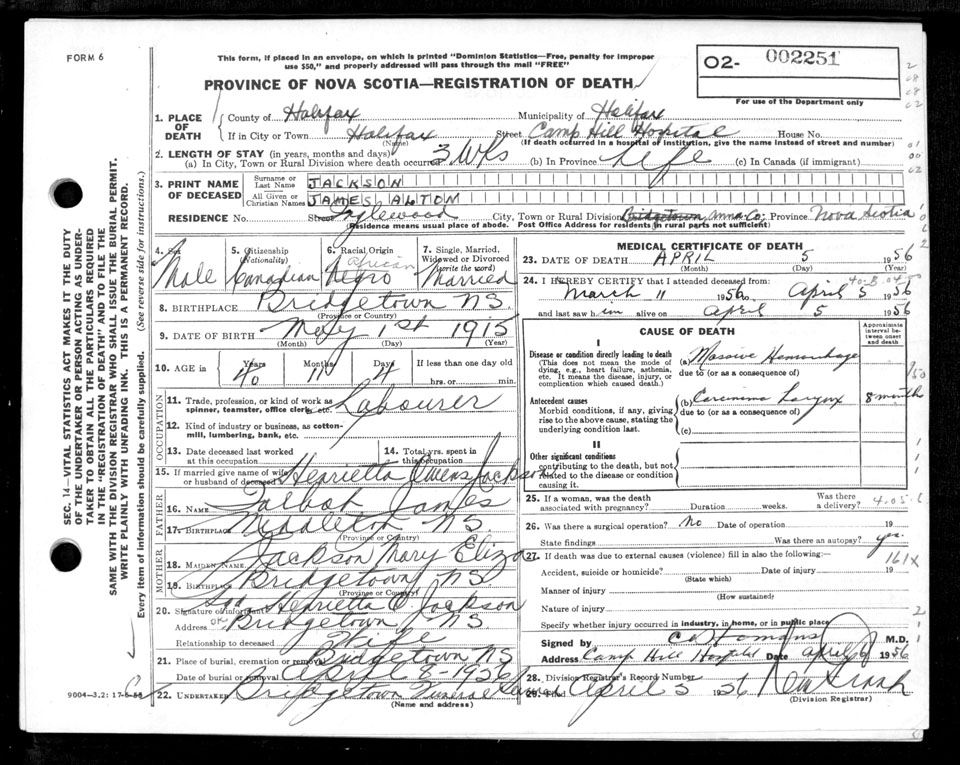 FORM 6
This form, if placed in an envelope, on which is printed "Dominion Statistics—Free, penalty for improper
use $50," and properly addressed will pass through the mail "FREE"
PROVINCE OF NOVA SCOTIA—REGISTRATION OF DEATH
O2- 002251
For use of the Department only
1. PLACE OF DEATH
County of Halifax Municipality of Halifax
If in City or Town Halifax Street Camp Hill Hospital House No.
(Name) (If death occurred in a hospital or institution, give the name instead of street and number)
2. LENGTH OF STAY (in years, months and days)
(a) In City, Town or Rural Division where death occurred 3 Wks (b) In Province Life (c) In Canada (if immigrant)
3. PRINT NAME OF DECEASED
Surname or Last Name JACKSON
All Given or Christian Names JAMES ALTON
RESIDENCE No. Street Inglewood City, Town or Rural Division Bridgetown, Anna Co; Province Nova Scotia
(Residence means usual place of abode. Post Office Address for residents in rural parts not sufficient)
4. Sex Male
5. Citizenship (Nationality) Canadian
6. Racial Origin African Negro
7. Single, Married, Widowed or Divorced (write the word) Married
8. BIRTHPLACE Bridgetown NS
(Province or Country)
9. DATE OF BIRTH May 1st 1915
(Month) (Day) (Year)
10. AGE in Years 40 Months 11 Days 4 If less than one day old
hrs. or min.
OCCUPATION
11. Trade, profession, or kind of work as
spinner, teamster, office clerk, etc. Labourer
12. Kind of industry or business, as cotton-
mill, lumbering, bank, etc.
13. Date deceased last worked
at this occupation
14. Total yrs. spent in
this occupation
15. If married give name of wife
or husband of deceased Henrietta Owens Jackson
FATHER
16. NAME Talbot James
17. BIRTHPLACE Middleton NS.
(Province or Country)
MOTHER
18. MAIDEN NAME Jackson Mary Eliza
19. BIRTHPLACE Bridgetown NS
(Province or Country)
20. Signature of informant Sgd Henrietta O Jackson
Address Bridgetown NS.
Relationship to deceased Wife
21. Place of burial, cremation or removal Bridgetown NS
Date of burial or removal April 8-1956
22. UNDERTAKER Bridgetown Funeral
(Name and address)
9004—3.2: 17-5-55
MEDICAL CERTIFICATE OF DEATH
23. DATE OF DEATH APRIL 5 1956
(Month) (Day) (Year)
24. I HEREBY CERTIFY that I attended deceased from:
March 11 1956 to April 5 1956
and last saw him alive on April 5 1956
CAUSE OF DEATH
Approximate interval between onset and death
I
Disease or condition directly leading to death
(This does not mean the mode of
dying, e.g., heart failure, asthenia,
etc. It means the disease, injury, or
complication which caused death.)
(a) Massive Hemorrhage
due to (or as a consequence of)
Antecedent causes
Morbid conditions, if any, giving
rise to the above cause, stating the
underlying condition last.
(b) Carcinoma Larynx 8 months
due to (or as a consequence of)
(c)
II
Other significant conditions
contributing to the death, but not
related to the disease or condition
causing it.
25. If a woman, was the death
associated with pregnancy? Duration weeks. Was there
a delivery?
26. Was there a surgical operation? No Date of operation 19
State findings Was there an autopsy? yes.
27. If death was due to external causes (violence) fill in also the following:—
161X
Accident, suicide or homicide? Date of injury 19
(State which)
Manner of injury
(How sustained)
Nature of injury
Specify whether injury occurred in industry, in home, or in public place
Signed by M.D.
Address Camp Hill Hospital Date April 6 1956
28. Division Registrar's Record Number
29. Filed April 5 1956
(Division Registrar)
SEC. 14—VITAL STATISTICS ACT MAKES IT THE DUTY
OF THE UNDERTAKER OR PERSON ACTING AS UNDER-
TAKER TO OBTAIN ALL THE PARTICULARS REQUIRED
IN THE "REGISTRATION OF DEATH" AND TO FILE THE
SAME WITH THE DIVISION REGISTRAR WHO SHALL ISSUE THE BURIAL PERMIT.
WRITE PLAINLY WITH UNFADING INK. THIS IS A PERMANENT RECORD.
Every item of information should be carefully supplied. (See reverse side for instructions.)